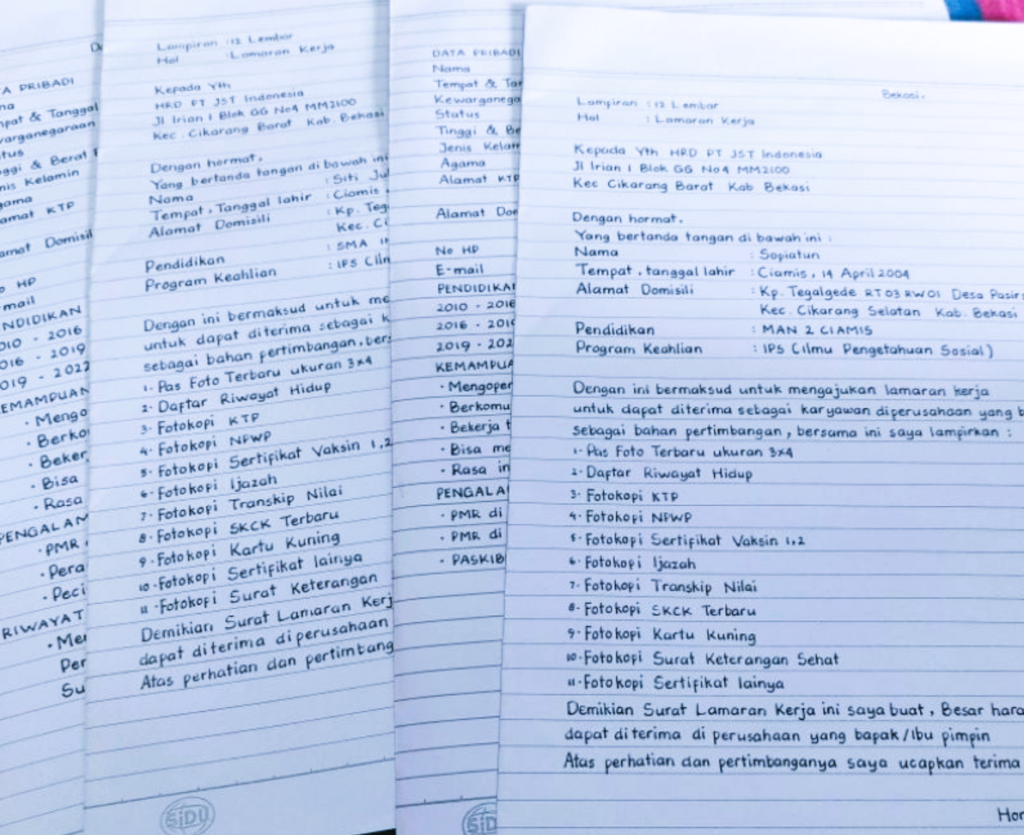 A PRIBADI
ma
mpat & Tanggal
warganegaraan
tus
nggi & Berat
nis Kelamin
gama
amat KTP
amat Domisil
o HP
mail
NDIDIKAN
010 - 2016
016 - 2019
019 - 2022
EMAMPUAN
• Mengo
• Berko
• Beker
• Bisa
• Rasa
PENGALAM
• PMR
• Pera
• Peci
RIWAYAT
• Me
Per
Su
Lampiran : 12 Lembar
Hal : Lamaran Kerja
Kepada Yth
HRD PT JST Indonesia
Jl Irian 1 Blok GG No4 MM2100
Kec. Cikarang Barat Kab. Bekasi
Dengan hormat,
Yang bertanda tangan di bawah ini
Nama : Siti Jul
Tempat, Tanggal lahir : Ciamis,
Alamat Domisili : Kp. Teg
Kec. Ci
Pendidikan : SMA
Program Keahlian : IPS (Ilm
Dengan ini bermaksud untuk me
untuk dapat diterima sebagai k
sebagai bahan pertimbangan, ber
1. Pas Foto Terbaru ukuran 3x4
2. Daftar Riwayat Hidup
3. Fotokopi KTP
4. Fotokopi NPWP
5. Fotokopi Sertifikat Vaksin 1,2
6. Fotokopi Ijazah
7. Fotokopi Transkip Nilai
8. Fotokopi SKCK Terbaru
9. Fotokopi Kartu Kuning
10. Fotokopi Sertifikat lainya
11. Fotokopi Surat Keterangan
Demikian Surat Lamaran Kerj
dapat diterima diperusahaan
Atas perhatian dan pertimbang
SiDU
DATA PRIBADI
Nama
Tempat & Tan
Kewarganega
Status
Tinggi & Be
Jenis Kelam
Agama
Alamat KTP
Alamat Dom
No HP
E-mail
PENDIDIKAN
2010 - 2016
2016 - 201
2019 - 202
KEMAMPUA
• Mengoper
• Berkomu
• Bekerja t
• Bisa me
• Rasa in
PENGALA
• PMR di
• PMR di
• PASKIB
SiD
Bekasi,
Lampiran : 12 Lembar
Hal : Lamaran Kerja
Kepada Yth HRD PT JST Indonesia
Jl Irian 1 Blok GG No4 MM2100
Kec Cikarang Barat Kab Bekasi
Dengan hormat,
Yang bertanda tangan di bawah ini :
Nama : Sopiatun
Tempat, tanggal lahir : Ciamis, 14 April 2004
Alamat Domisili : Kp. Tegalgede RT03 RW01 Desa Pasir
Kec. Cikarang Selatan Kab. Bekasi
Pendidikan : MAN 2 CIAMIS
Program Keahlian : IPS (Ilmu Pengetahuan Sosial)
Dengan ini bermaksud untuk mengajukan lamaran kerja
untuk dapat diterima sebagai karyawan diperusahaan yang b
sebagai bahan pertimbangan, bersama ini saya lampirkan :
1. Pas Foto Terbaru ukuran 3x4
2. Daftar Riwayat Hidup
3. Fotokopi KTP
4. Fotokopi NPWP
5. Fotokopi Sertifikat Vaksin 1,2
6. Fotokopi Ijazah
7. Fotokopi Transkip Nilai
8. Fotokopi SKCK Terbaru
9. Fotokopi Kartu Kuning
10. Fotokopi Surat Keterangan Sehat
11. Fotokopi Sertifikat lainya
Demikian Surat Lamaran Kerja ini saya buat, Besar hara
dapat diterima di perusahaan yang bapak/Ibu pimpin
Atas perhatian dan pertimbanganya saya ucapkan terima
Hor